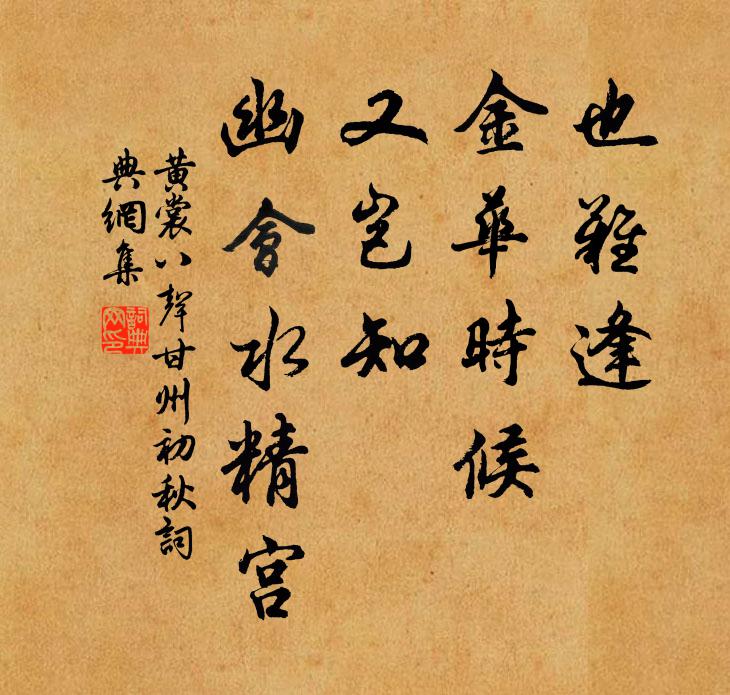 也難逢
金華時候
又豈知
幽會水精宮
黃裳八聲甘州初秋詞
典網集
詞典網印